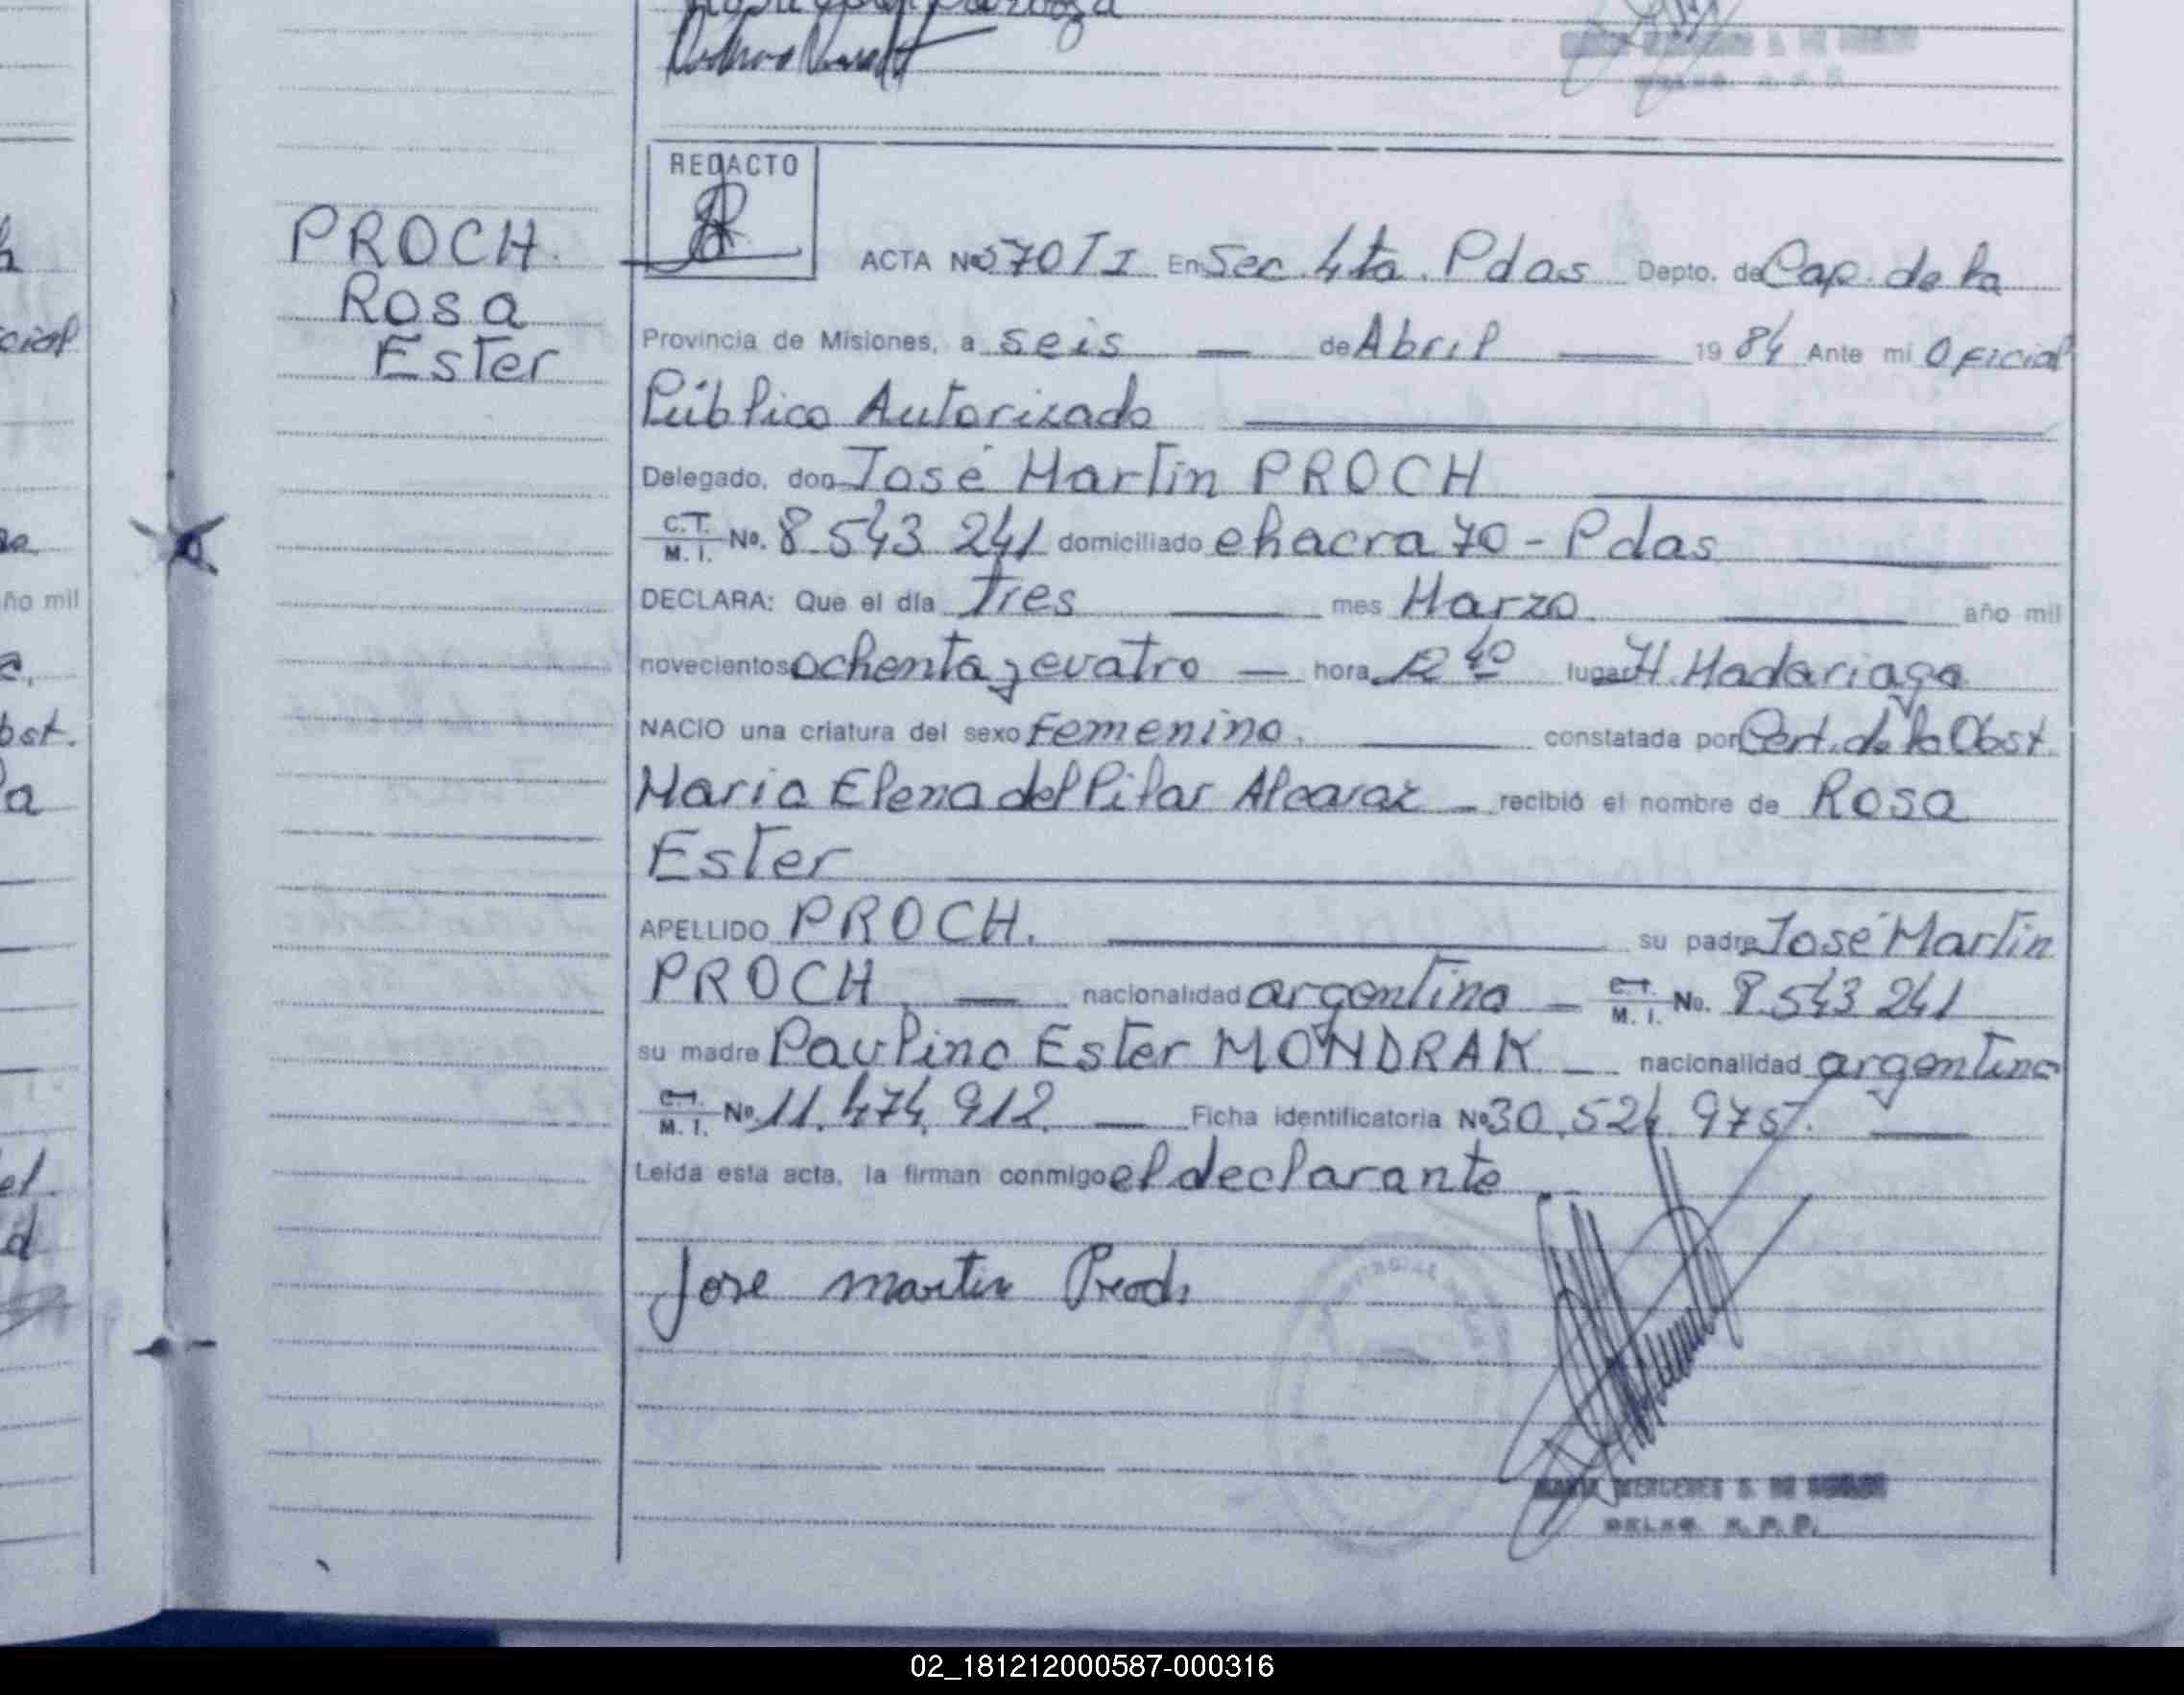 REDACTO
PROCH.
Rosa
Ester
ACTA Nº 570 T I En Sec. 4ta. Pdas Depto. de Cap. de la
Provincia de Misiones, a seis — de Abril — 1984 Ante mi Oficial
Público Autorizado
Delegado, don José Martín PROCH
C.T. M. I. No. 8.543 241 domiciliado chacra 70 - Pdas
DECLARA: Que el día Tres mes Marzo año mil
novecientos ochenta y cuatro — hora 12 40 lugar H. Madariaga
NACIO una criatura del sexo Femenino. constatada por Cert. de la Obst.
Maria Elena del Pilar Alcaraz — recibió el nombre de Rosa
Ester
APELLIDO PROCH. su padre José Martín
PROCH — nacionalidad argentina — C.T. M. I. No. 8.543 241
su madre Paulina Ester MONDRAK — nacionalidad argentina
C.T. M. I. No. 11.474.912. — Ficha identificatoria Nº 30.524.975. —
Leida esta acta, la firman conmigo el declarante
Jose martin Proch
MERCEDES S. DE
DELEG. R. P. P.
ño mil
cial
bst.
02_181212000587-000316